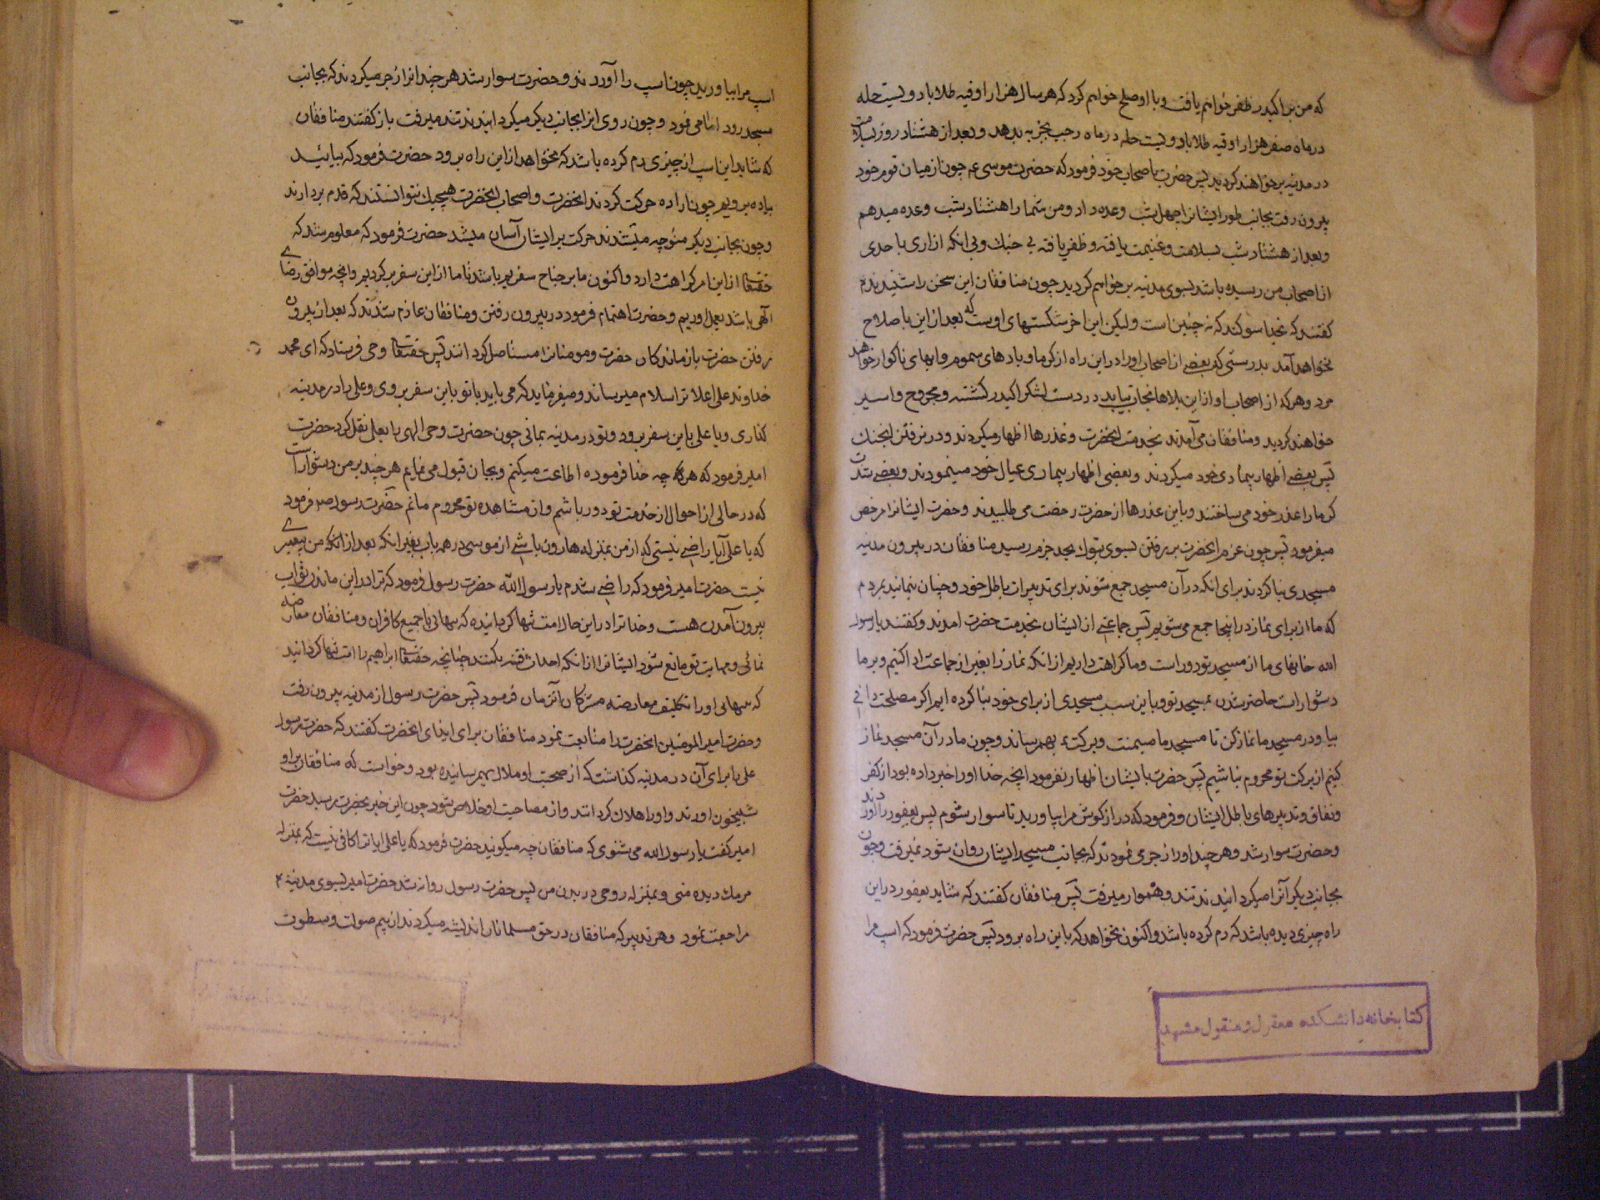 که من بر اکیدر ظفر خواهم یافت و با او صلح خواهم کرد که هر سال هزار اوقیه طلا با دویست حله
در ماه صفر هزار اوقیه طلا با دویست حله در ماه رجب بجزیه بدهد و بعد از هشتاد روز بسلامت
در مدینه بر خواهند گردید پس حضرت باصحاب خود فرمود که حضرت موسی ع چون از میان قوم خود
بیرون رفت بجانب طور ایشانرا چهل شب وعده داد و من شما را هشتاد شب وعده میدهم
و بعد از هشتاد شب بسلامت و غنیمت یافته و ظفر یافته بی جنک و بی انکه ازاری باحدی
از اصحاب من رسیده باشد بسوی مدینه بر خواهم کردید چون منافقان این سخن را شنیدند
کفتند که بخدا سوکند که نه چنین است و لیکن این اخر شکستهای اوست که بعد از این باصلاح
نخواهد آمد بدرستی که بعضی از اصحاب او را در این راه از کرما و بادهای سموم و ابهای ناکوار خواهد
مرد و هر که از اصحاب او از این بلاها نجات بیابد در دست لشکر اکیدر کشته و مجروح و اسیر
خواهند کردید و منافقان می آمدند بخدمت انحضرت و عذرها اظهار میکردند و در نرفتن انجنک
پس بعضی اظهار بیماری خود میکردند و بعضی اظهار بیماری عیال خود مینمودند و بعضی شدت
کرما را عذر خود می ساختند و باین عذرها از حضرت رخصت می طلبیدند و حضرت ایشانرا مرخص
میفرمود پس چون عزم انحضرت بر رفتن بسوی تبوک بحد جزم رسید منافقان در بیرون مدینه
مسجدی بنا کردند برای انکه در آن مسجد جمع شوند برای تدبیرات باطل خود و چنان بنمایند بمردم
که ما از برای نماز در اینجا جمع می شویم پس جماعتی از ایشان بخدمت حضرت امدند و کفتند یا رسول
الله خانهای ما از مسجد تو دور است و ما کراهت داریم از انکه نماز را بغیر از جماعت ادا کنیم و بر ما
دشوار است حاضر شدن بمسجد تو و باین سبب مسجدی از برای خود بنا کرده ایم اکر مصلحت دانی
بیا و در مسجد ما نماز کن تا مسجد ما میمنت و برکت بهم رساند و چون ما در آن مسجد نماز
کنیم از برکت تو محروم نباشیم پس حضرت بایشان اظهار نفرمود انچه خدا او را خبر داده بود از کفر
و نفاق و تدبیرهای باطل ایشان و فرمود که دراز کوش مرا بیاورید تا سوار شوم پس یعفور را اوردند
و حضرت سوار شد و هر چند او را زجر می نمودند که بجانب مسجد ایشان روان شود نمیرفت و چون
بجانب دیکر آنرا میکردانیدند تند و هموار میرفت پس منافقان کفتند که شاید یعفور در این
راه چیزی دیده باشد که رم کرده باشد و اکنون نخواهد که باین راه برود پس حضرت فرمود که اسپ مرا
کتابخانه دانشکده معقول و منقول مشهد
اسپ مرا بیاورید چون اسپ را آوردند و حضرت سوار شد هر چند انرا زجر میکردند که بجانب
مسجد رود ابا می نمود و چون روی انرا بجانب دیکر میکردانیدند تند میرفت باز کفتند منافقان
که شاید این اسپ از چیزی رم کرده باشد که نخواهد از این راه برود حضرت فرمود که بیائید
پیاده برویم چون اراده حرکت کردند انحضرت و اصحاب انحضرت هیچیک نتوانستند که قدم بردارند
و چون بجانب دیکر متوجه میشدند حرکت بر ایشان آسان میشد حضرت فرمود که معلوم شد که
حقتعالی از این امر کراهت دارد و اکنون ما بر جناح سفریم باشد تا ما از این سفر بر کردیم و انچه موافق رضای
الهی باشد بعمل اوریم و حضرت اهتمام فرمود در بیرون رفتن و منافقان عازم شدند که بعد از بیرون
رفتن حضرت بازماندکان حضرت و مومنانرا مستاصل کردانند پس حقتعالی وحی فرستاد که ای محمد
خداوند علی اعلا ترا سلام میرساند و میفرماید که می باید یا تو باین سفر بروی و علی را در مدینه
کذاری و یا علی باین سفر برود و تو در مدینه بمانی چون حضرت وحی الهی را بعلی نقل کرد حضرت
امیر فرمود که هر چه خدا فرموده اطاعت میکنم و بجان قبول می نمایم هر چند بر من دشوار است
که در حالی از احوال از خدمت تو دور باشم و از مشاهده تو محروم مانم حضرت رسول ص فرمود
که یا علی آیا راضی نیستی که از من بمنزله هارون باشی از موسی در همه باب بغیر انکه بعد از انکه من پیغمبری
نیست حضرت امیر فرمود که راضی شدم یا رسول الله حضرت رسول فرمود که ترا در این ماندن ثواب
بیرون آمدن هست و خدا ترا در این حال امت تنها کردانیده که بتنهائی با جمیع کافران و منافقان معارضه
نمائی و مهابت تو مانع شود ایشانرا از انکه احداث فتنه بکنند چنانچه حقتعالی ابراهیم را امت تنها کردانید
که بتنهائی او را تکلیف معارضه مشرکان باآنزمان فرمود پس حضرت رسول از مدینه بیرون رفت
و حضرت امیر المومنین انحضرت را متابعت نمود منافقان برای ایذای انحضرت کفتند که حضرت رسول
علی را برای آن در مدینه کذاشت که از صحبت او ملال بهم رسانیده بود و خواست که منافقان بر او
شبیخون اورند و او را هلاک کردانند و از مصاحبت او خلاص شود چون این خبر بحضرت رسید حضرت
امیر کفت یا رسول الله می شنوی که منافقان چه میکویند حضرت فرمود که یا علی ایا ترا کافی نیست که بمنزله
مردمک دیده منی و بمنزله روحی در بدن من پس حضرت رسول روانه شد حضرت امیر بسوی مدینه
مراجعت نمود و هر تدبیر که منافقان در حق مسلمانان اندیشه میکردند از بیم صولت و سطوت